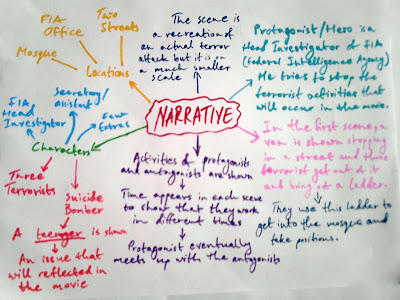 FIA
Office
Two
Streets
Mosque
Locations
The scene is
a recreation of
an actual terror
attack but it is on
a much smaller
scale
Protagonist/Hero is a
Head Investigator of FIA
(Federal Intelligence Agency)
He tries to stop the
terrorist activities that
will occur in the movie.
NARRATIVE
Secretary/
assistant
FIA
Head
Investigator
Few
Extras
Characters
Three
Terrorists
Suicide
Bomber
A teenger is shown
An issue that
will reflected in
the movie
Activities of protagonists
and antagonists are shown
Time appears in each scene
to show that they work
in different times
Protagonist eventually
meets up with the antagonists
In the first scene, a
van is shown stopping
in a street and three
terrorist get out of it
and bring out a ladder.
They use this ladder to
get into the mosque and
take positions.